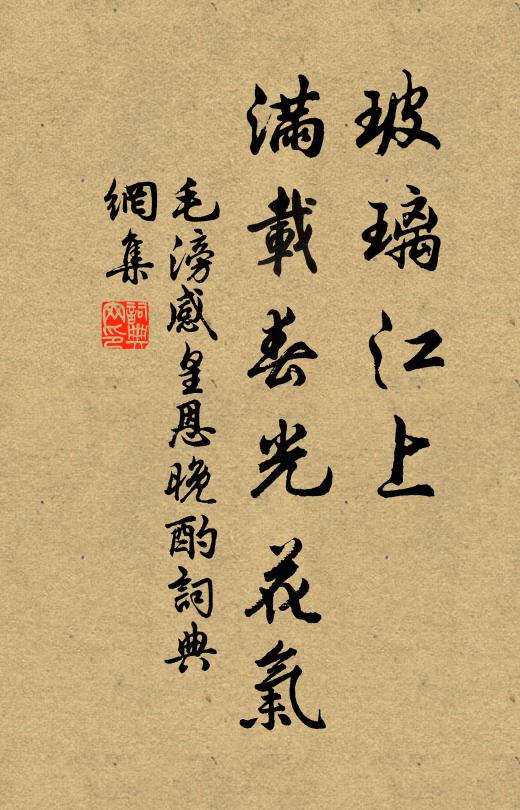 玻璃江上
滿載春光花氣
毛滂感皇恩晚酌詞典
網集
詞典
网印